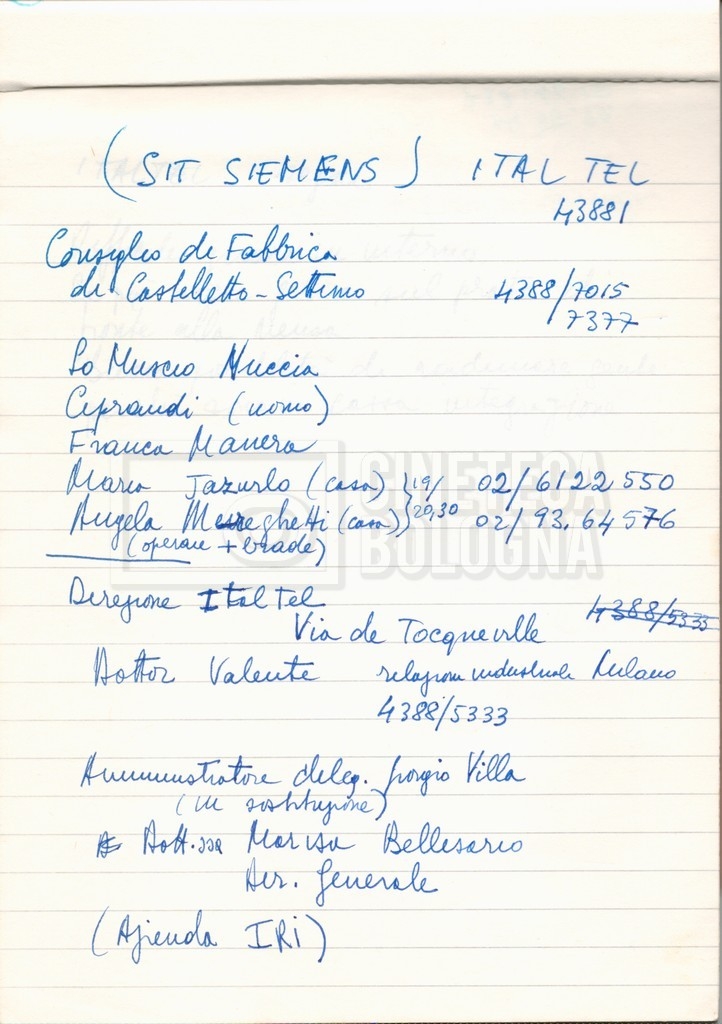 (SIT SIEMENS) ITAL TEL
43881
Consiglio di Fabbrica
di Castelletto-Settimo 4388/7015
7377
Lo Muscio Nuccia
Ciprandi (uomo)
Franca Manera
Maria Jazurlo (casa) 19/ 02/6122550
Angela Mereghetti (casa) 20,30 02/93.64576
(operaie + brade)
Direzione Ital Tel 4388/5333
Via de Tocqueville
Dottor Valente relazioni industriale Milano
4388/5333
Amministratore deleg. Giorgio Villa
(in sostituzione)
Dott.ssa Marisa Bellisario
Dir. Generale
(Azienda IRI)
CINETECA
BOLOGNA